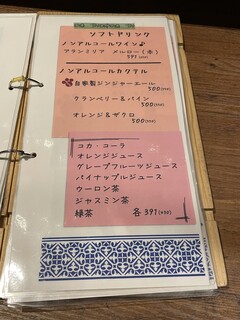 ソフトドリンク
ノンアルコールワイン♪
アランミリア メルロー(赤)
391(430)
ノンアルコールカクテル
自家製ジンジャーエール
500(550)
クランベリー&パイン
500(550)
オレンジ&ザクロ
500(550)
コカ・コーラ
オレンジジュース
グレープフルーツジュース
パイナップルジュース
ウーロン茶
ジャスミン茶
緑茶 各391(430)